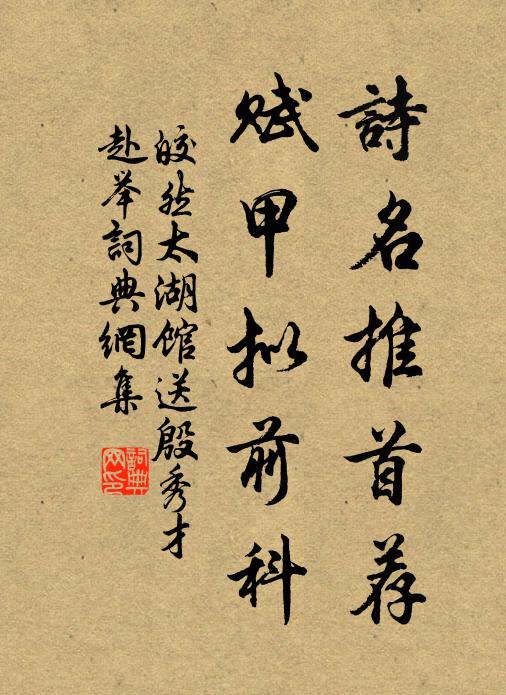 詩名推首荐
赋甲拟前科
皎然太湖馆送殷秀才
赴举詞典網集
詞典网印